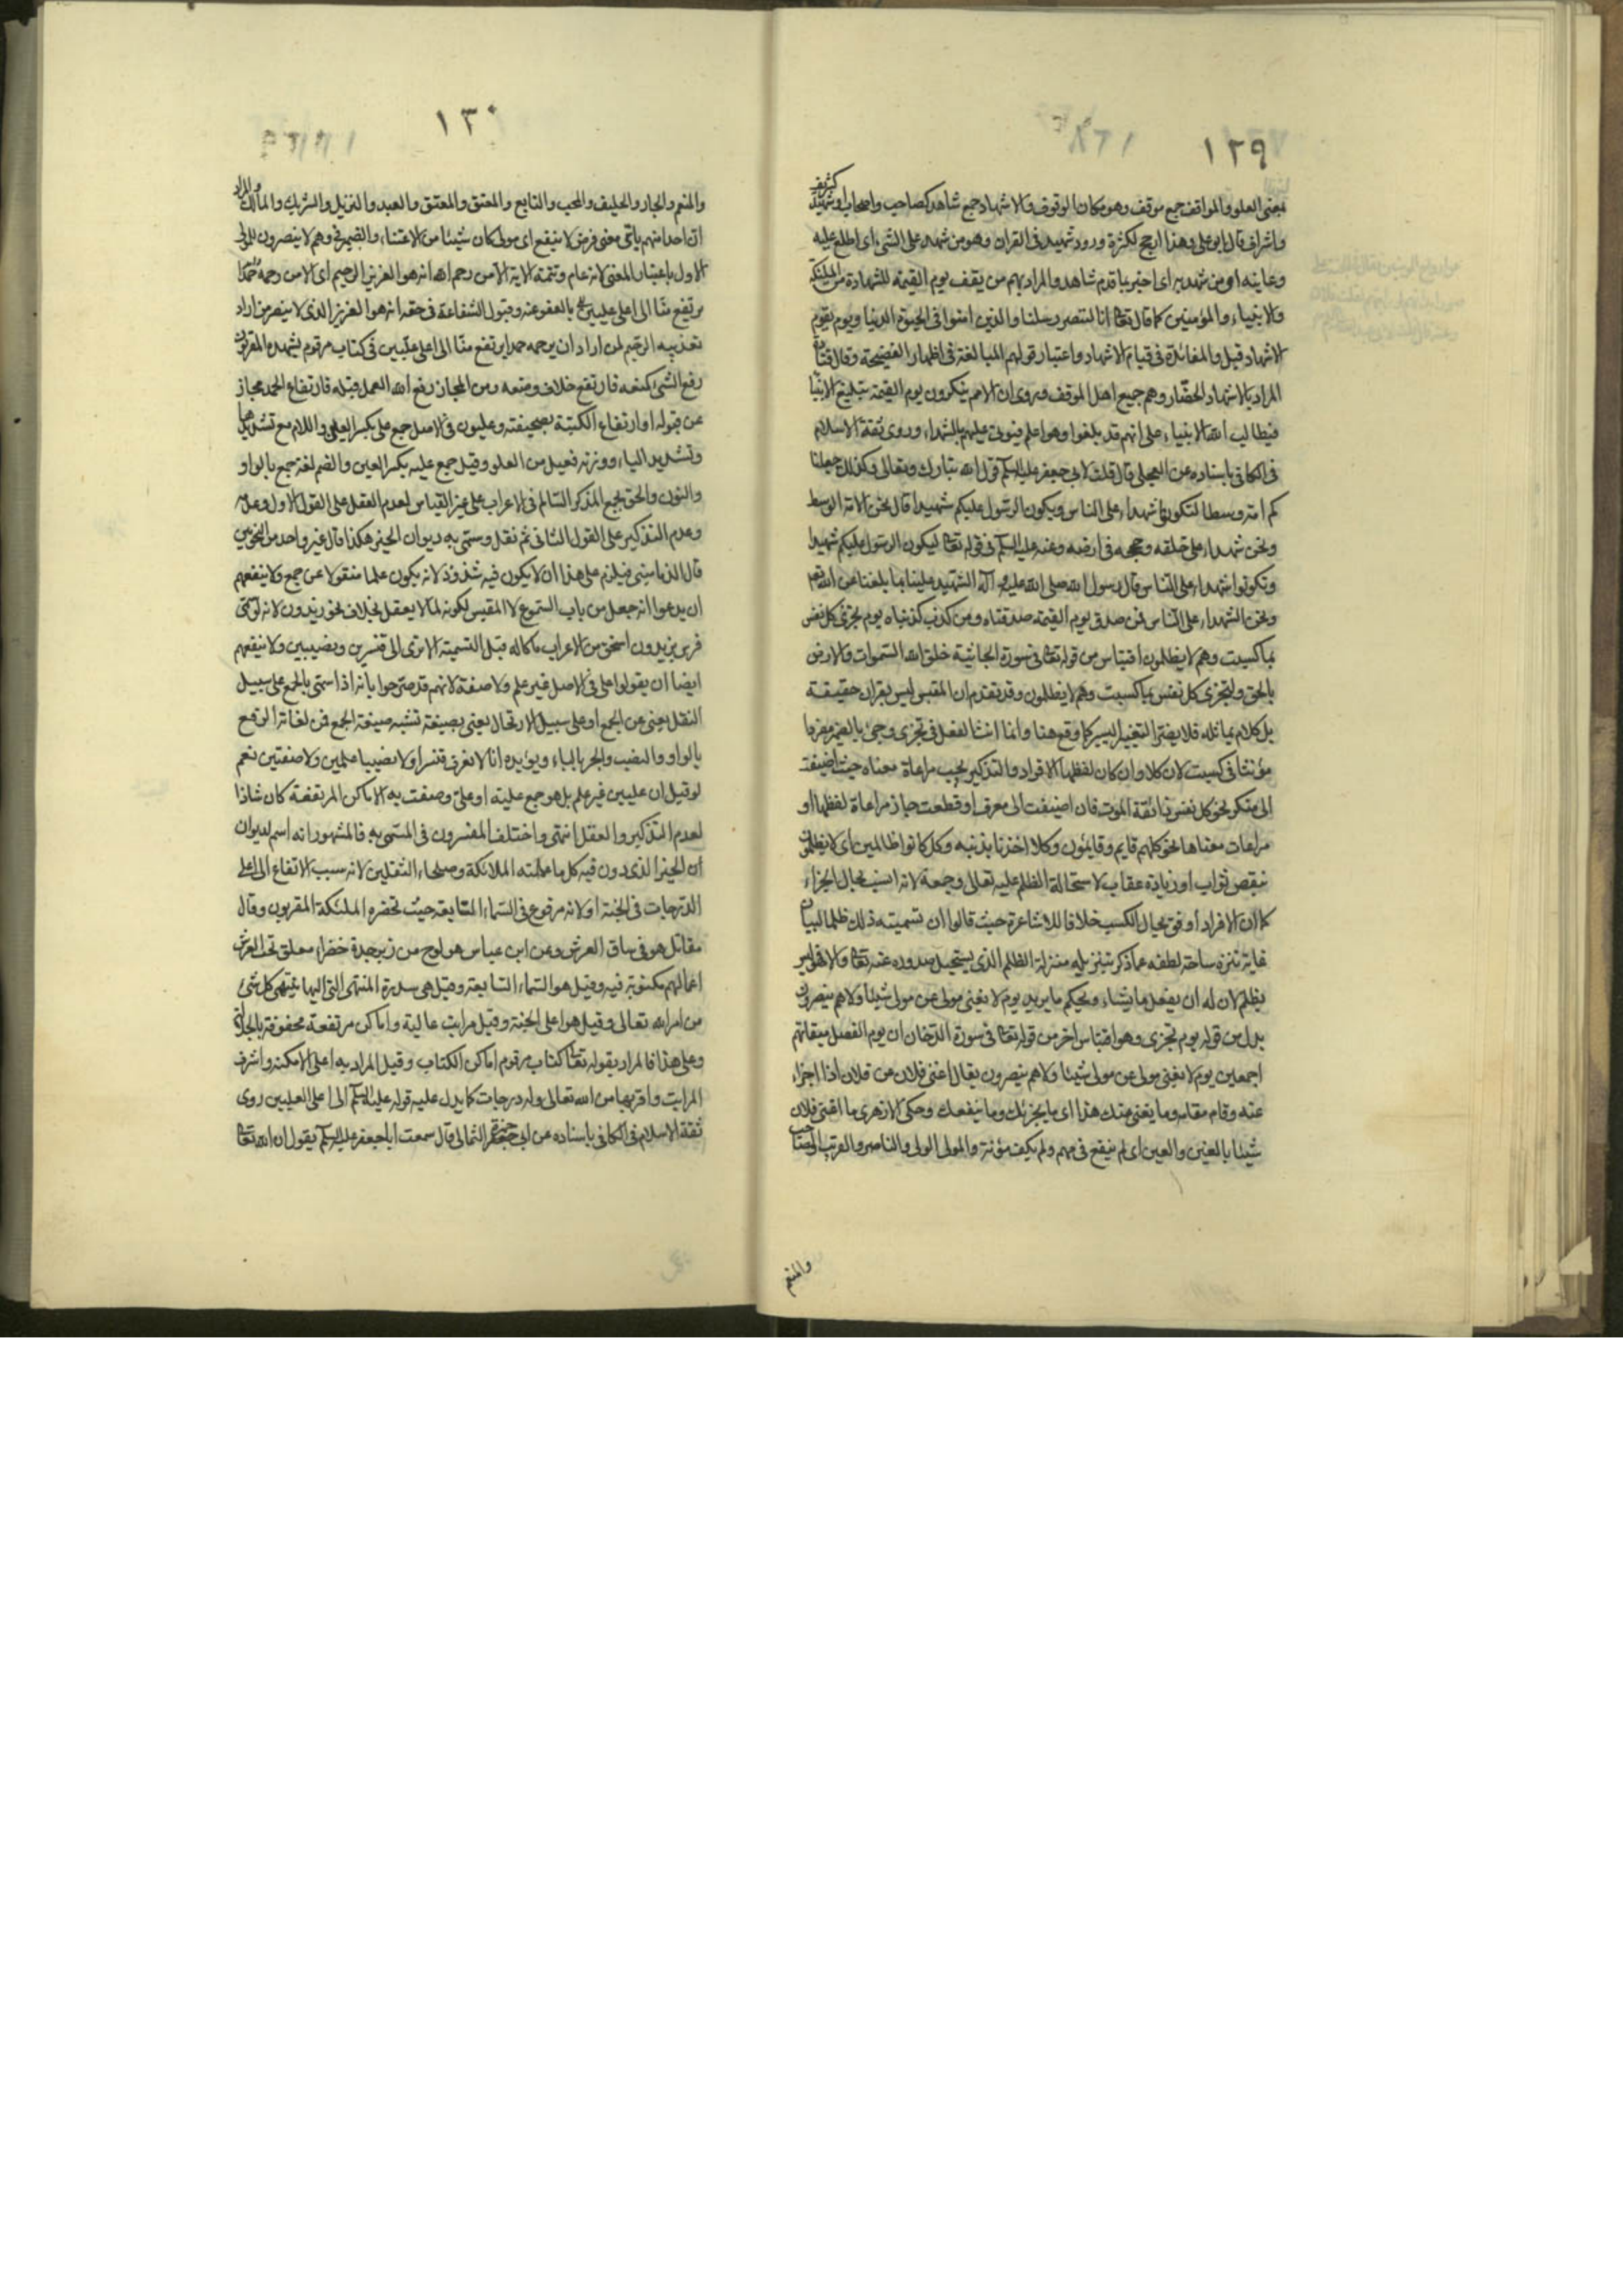 ١٢٩
بمعنى العلو والمواقف جمع موقف وهو مكان الوقوف والاشهاد جمع شاهد كصاحب واصحاب او شهيد كشريف
واشراف قال ابو علي وهذا ارجح لكثرة ورود شهيد في القران وهو من شهد على الشيء اى اطلع عليه
وعاينه او من شهد به اى اخبر بما قدم شاهد والمراد بهم من يقف يوم القيمة للشهادة من الملئكة
والانبياء والمؤمنين كما قال تعا انا لننصر رسلنا والذين امنوا في الحيوة الدنيا ويوم يقوم
الاشهاد قيل والفائدة في قيام الاشهاد واعتبار قولهم المبالغة في اظهار الفضيحة وقال قتادة
المراد بالاشهاد الحضّار وهم جميع اهل الموقف وروى ان الامم ينكرون يوم القيمة تبليغ الانبياء
فيطالب الله الانبياء على انهم قد بلغوا وهو اعلم فيؤتى عليهم بالشهداء وروى ثقة الاسلام
في الكافى باسناده عن العجلي قال قلت لابي جعفر عليه السلم قول الله تبارك وتعالى وكذلك جعلنا
كم امة وسطا لتكونوا شهداء على الناس ويكون الرسول عليكم شهيدا قال نحن الامة الوسط
ونحن شهداء على خلقه وحججه في ارضه وعنه عليه السلم في قوله تعا ليكون الرسول عليكم شهيدا
وتكونوا شهداء على الناس قال رسول الله صلى الله عليه وآله الشهيد علينا بما بلغنا عن الله
ونحن الشهداء على الناس فمن صدق يوم القيمة صدقناه ومن كذب كذبناه يوم تجزى كل نفس
بما كسبت وهم لا يظلمون اقتباس من قوله تعا في سورة الجاثية خلق الله السموات والارض
بالحق ولتجزى كل نفس بما كسبت وهم لا يظلمون وقد تقدم ان المقبس ليس بقران حقيقة
بل كلام يماثله فلا يضر التغيير اليسير كما وقع هنا وانما انث الفعل في تجزى وجئ بالضمير مفردا
مؤنثا في كسبت لان كلا وان كان لفظها الافراد والتذكير يجب مراعاة معناه حيث اضيفت
الى منكر نحو كل نفس ذائقة الموت فان اضيفت الى معرف او قطعت جاز مراعاة لفظها او
مراعات معناها نحو كلهم قايم وقايمون وكلا اخذنا بذنبه وكل كانوا ظالمين اى لا يظلمون
بنقص ثواب او زيادة عقاب لاستحالة الظلم عليه تعالى وجمعه لانه انسب بحال الجزاء
كما ان الافراد اوفق بحال الكسب خلافا للاشاعرة حيث قالوا ان تسميته ذلك ظلما لبيان
غاية تنزه ساحة لطفه عما ذكر بتنزيله منزلة الظلم الذى يستحيل صدوره عنه تعا والا فليس
بظلم لان له ان يفعل ما يشاء ويحكم ما يريد يوم لا يغنى مولى عن مولى شيئا ولا هم ينصرون
بدل من قوله يوم تجزى وهو اقتباس اخر من قوله تعا في سورة الدخان ان يوم الفصل ميقاتهم
اجمعين يوم لا يغنى مولى عن مولى شيئا ولا هم ينصرون يقال اغنى فلان عن فلان اذا اجزاء
عنه وقام مقامه وما يغنى عنك هذا اى ما يجزئك وما ينفعك وحكى الازهرى ما اغنى فلان
شيئا بالغين والعين اى لم ينفع في مهم ولم يكف مؤنة والمولى الولى والناصر والقريب الصاحب
والمنعم
١٣٠
والمنعم والجار والحليف والمحب والتابع والمعتق والمعتق والعبد والنزيل والشريك والمالك والمراد
ان احدا منهم باى معنى فرض لا ينفع اى مولى كان شيئا من الاغناء والضمير في وهم لا ينصرون للمولى
الاول باعتبار المعنى لانه عام وتتمة الاية الا من رحم الله انه هو العزيز الرحيم اى الا من رحمه
بالعفو عنه وقبول الشفاعة في حقه انه هو العزيز الذى لا ينصر من اراد
تعذيبه الرحيم لمن اراد ان يرحمه حمدا يرتفع منا الى اعلى عليين في كتاب مرقوم يشهده المقربون
رفع الشئ كمنعه فارتفع خلاف وضعه ومن المجاز رفع الله العمل قبله فارتفاع الحمد مجاز
عن قبوله او ارتفاع الكتبة بصحيفته وعليون في الاصل جمع على بكسر العين واللام مع تشديدها
وتشديد الياء ووزنه فعيل من العلو وقيل جمع علية بكسر العين والضم لغة جمع بالواو
والنون والحق بجمع المذكر السالم في الاعراب على غير القياس لعدم العقل على القول الاول وعدمه
وعدم التذكير على القول الثانى ثم نقل وسمى به ديوان الخير هكذا قال غير واحد من النحويين
قال الدمامينى فيلزم على هذا ان لا يكون فيه شذوذ لانه يكون علما منقولا عن جمع ولا ينفعهم
ان يدعوا انه جعل من باب المسموع لا المقيس لكونه لما لا يعقل بخلاف نحو زيدون لانه لو سمى
فرس بزيدون استحق من الاعراب ما كان له قبل التسمية الا ترى الى قنسرين ونصيبين ولا ينفعهم
ايضا ان يقولوا على في الاصل غير علم ولا صفة لانهم قد صرحوا بانه اذا سمى بالجمع على سبيل
النقل يعنى عن الجمع او على سبيل الارتجال يعنى بصيغة تشبه صيغة الجمع فمن لغاته الرفع
بالواو والنصب والجر بالياء ويؤيده انا لا نعرف قنسرا ولا نصيبا علمين ولا صفتين نعم
لو قيل ان عليين غير علم بل هو جمع علية او على وصفت به الاماكن المرتفعة كان شاذا
لعدم التذكير والعقل انتهى واختلف المفسرون في المسمى به فالمشهور انه اسم لديوان
الخير الذى دون فيه كل ما عملته الملائكة وصلحاء الثقلين لانه سبب الارتفاع الى اعلى
الدرجات في الجنة او لانه مرفوع في السماء السابعة حيث تحضره الملئكة المقربون وقال
مقاتل هو في ساق العرش وعن ابن عباس هو لوح من زبرجدة خضراء معلق تحت العرش
اعمالهم مكتوبة فيه وقيل هو السماء السابعة وقيل هى سدرة المنتهى التى اليها ينتهى كل شئ
من امر الله تعالى وقيل هو اعلى الجنة وقيل مراتب عالية واماكن مرتفعة محفوفة بالجلالة
وعلى هذا فالمراد بقوله تعا كتاب مرقوم اماكن الكتاب وقيل المراد به اعلى الامكنة واشرف
المراتب واقربها من الله تعالى وله درجات كما يدل عليه قوله عليه السلم الى اعلى العليين روى
ثقة الاسلام في الكافى باسناده عن ابى حمزة الثمالى قال سمعت ابا جعفر عليه السلم يقول ان الله تعا